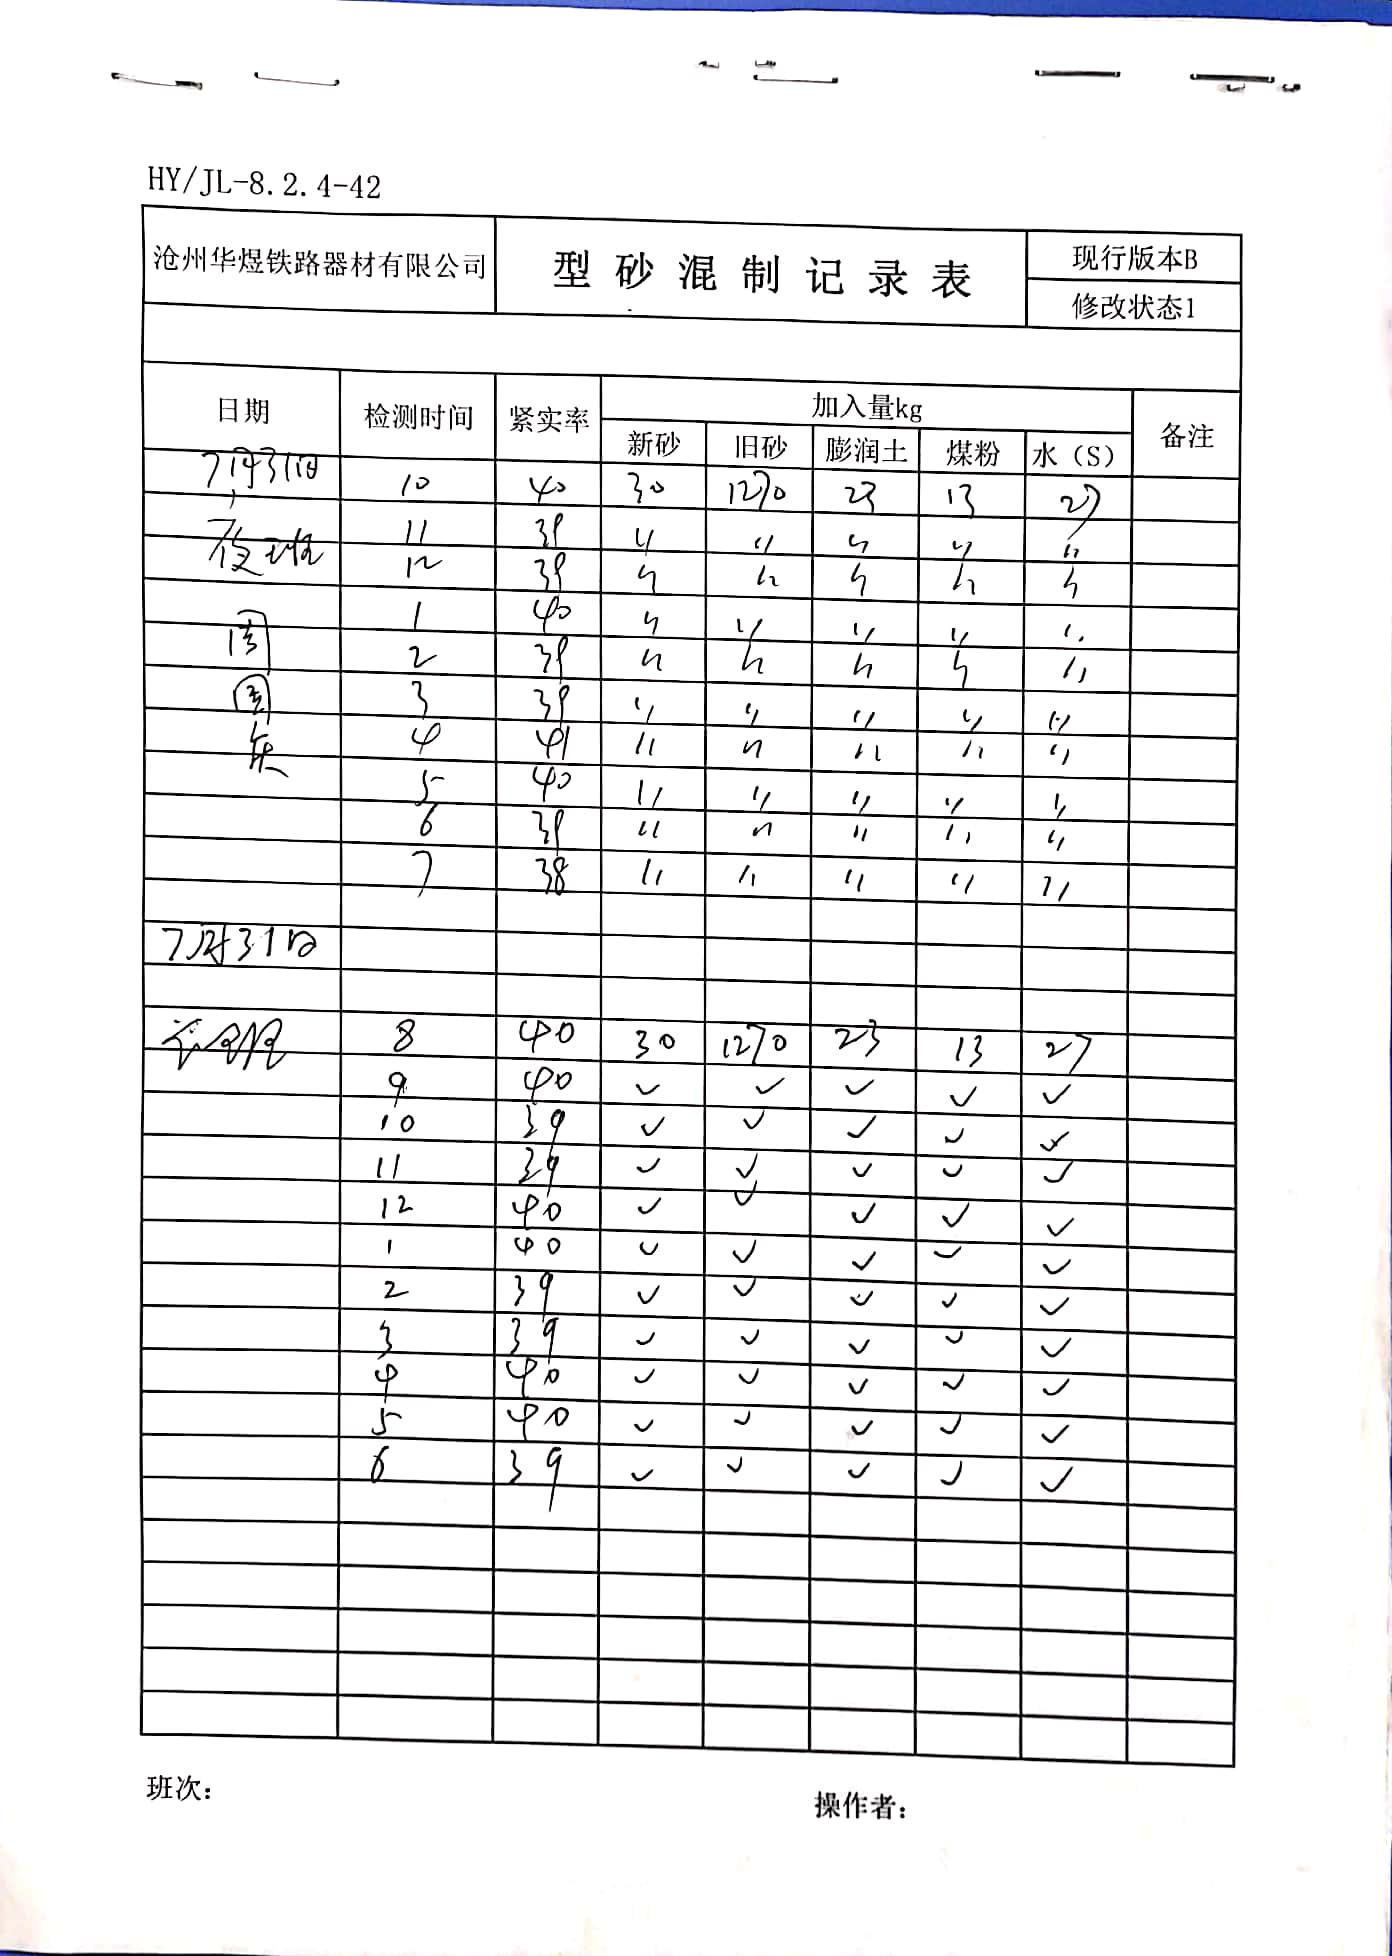 HY/JL-8.2.4-42
沧州华煜铁路器材有限公司 型砂混制记录表 现行版本B
修改状态1
日期 检测时间 紧实率 加入量kg 备注
新砂 旧砂 膨润土 煤粉 水（S）
7月31日 10 40 30 1270 23 13 27
夜班 11 39 〃 〃 〃 〃 〃
12 39 〃 〃 〃 〃 〃
周 1 40 〃 〃 〃 〃 〃
2 39 〃 〃 〃 〃 〃
国 3 39 〃 〃 〃 〃 〃
庆 4 41 〃 〃 〃 〃 〃
5 40 〃 〃 〃 〃 〃
6 39 〃 〃 〃 〃 〃
7 38 〃 〃 〃 〃 〃
7月31日
8 40 30 1270 23 13 27
9 40 ✓ ✓ ✓ ✓ ✓
10 39 ✓ ✓ ✓ ✓ ✓
11 39 ✓ ✓ ✓ ✓ ✓
12 40 ✓ ✓ ✓ ✓ ✓
1 40 ✓ ✓ ✓ ✓ ✓
2 39 ✓ ✓ ✓ ✓ ✓
3 39 ✓ ✓ ✓ ✓ ✓
4 40 ✓ ✓ ✓ ✓ ✓
5 40 ✓ ✓ ✓ ✓ ✓
6 39 ✓ ✓ ✓ ✓ ✓
班次： 操作者：